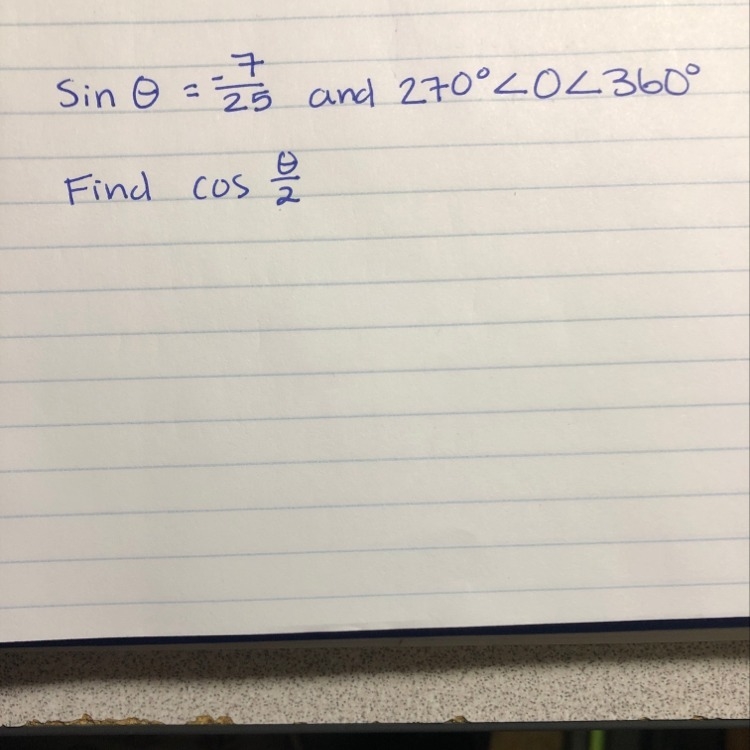 Sin θ = -7/25 and 270° < 0 < 360°
Find cos θ/2